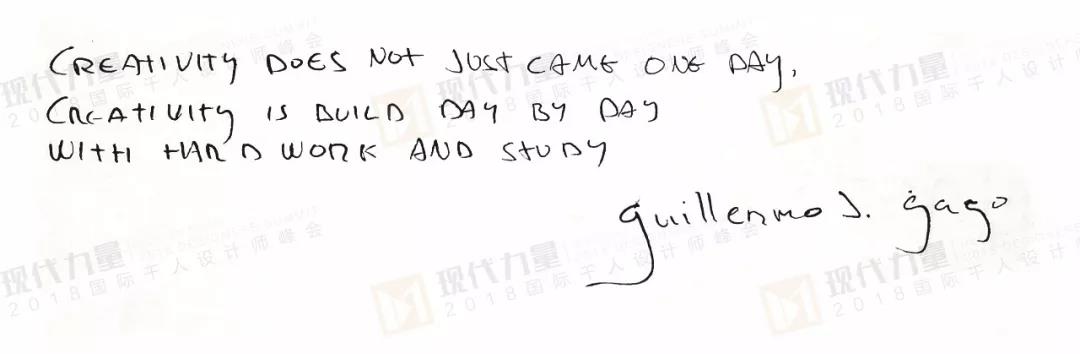 CREATIVITY DOES NOT JUST CAME ONE DAY,
CREATIVITY IS BUILD DAY BY DAY
WITH HARD WORK AND STUDY
guillermo J. gago
现代力量
2018国际千人设计师峰会
现代力量
2018国际千人设计师峰会
现代力量
2018国际千人设计师峰会
现代力量
2018国际千人设计师峰会